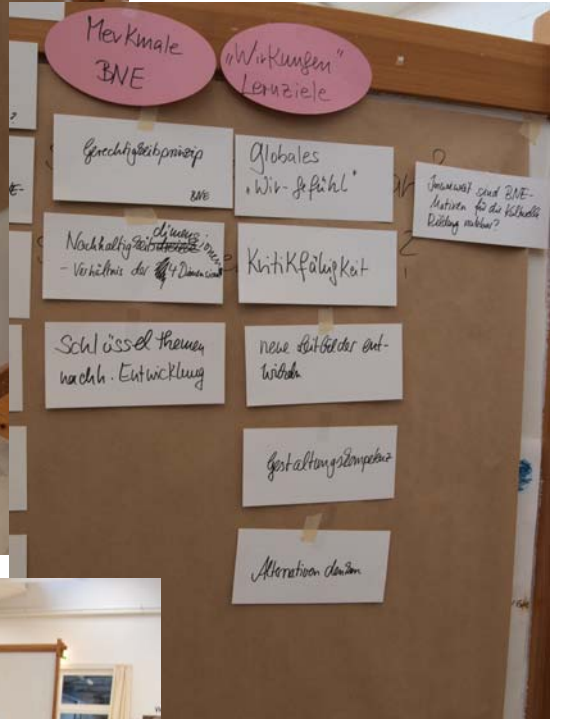 Merkmale
BNE
Gerechtigkeitsprinzip
BNE
Nachhaltigkeitsdimensionen
- Verhältnis der 4 Dimensionen
Schlüsselthemen
nachh. Entwicklung
„Wirkungen"
Lernziele
Globales
„Wir-Gefühl"
Kritikfähigkeit
neue Leitbilder ent-
wickeln
Gestaltungskompetenz
Alternativen denken
Inwieweit sind BNE-
für die Kulturelle
Bildung nutzbar?